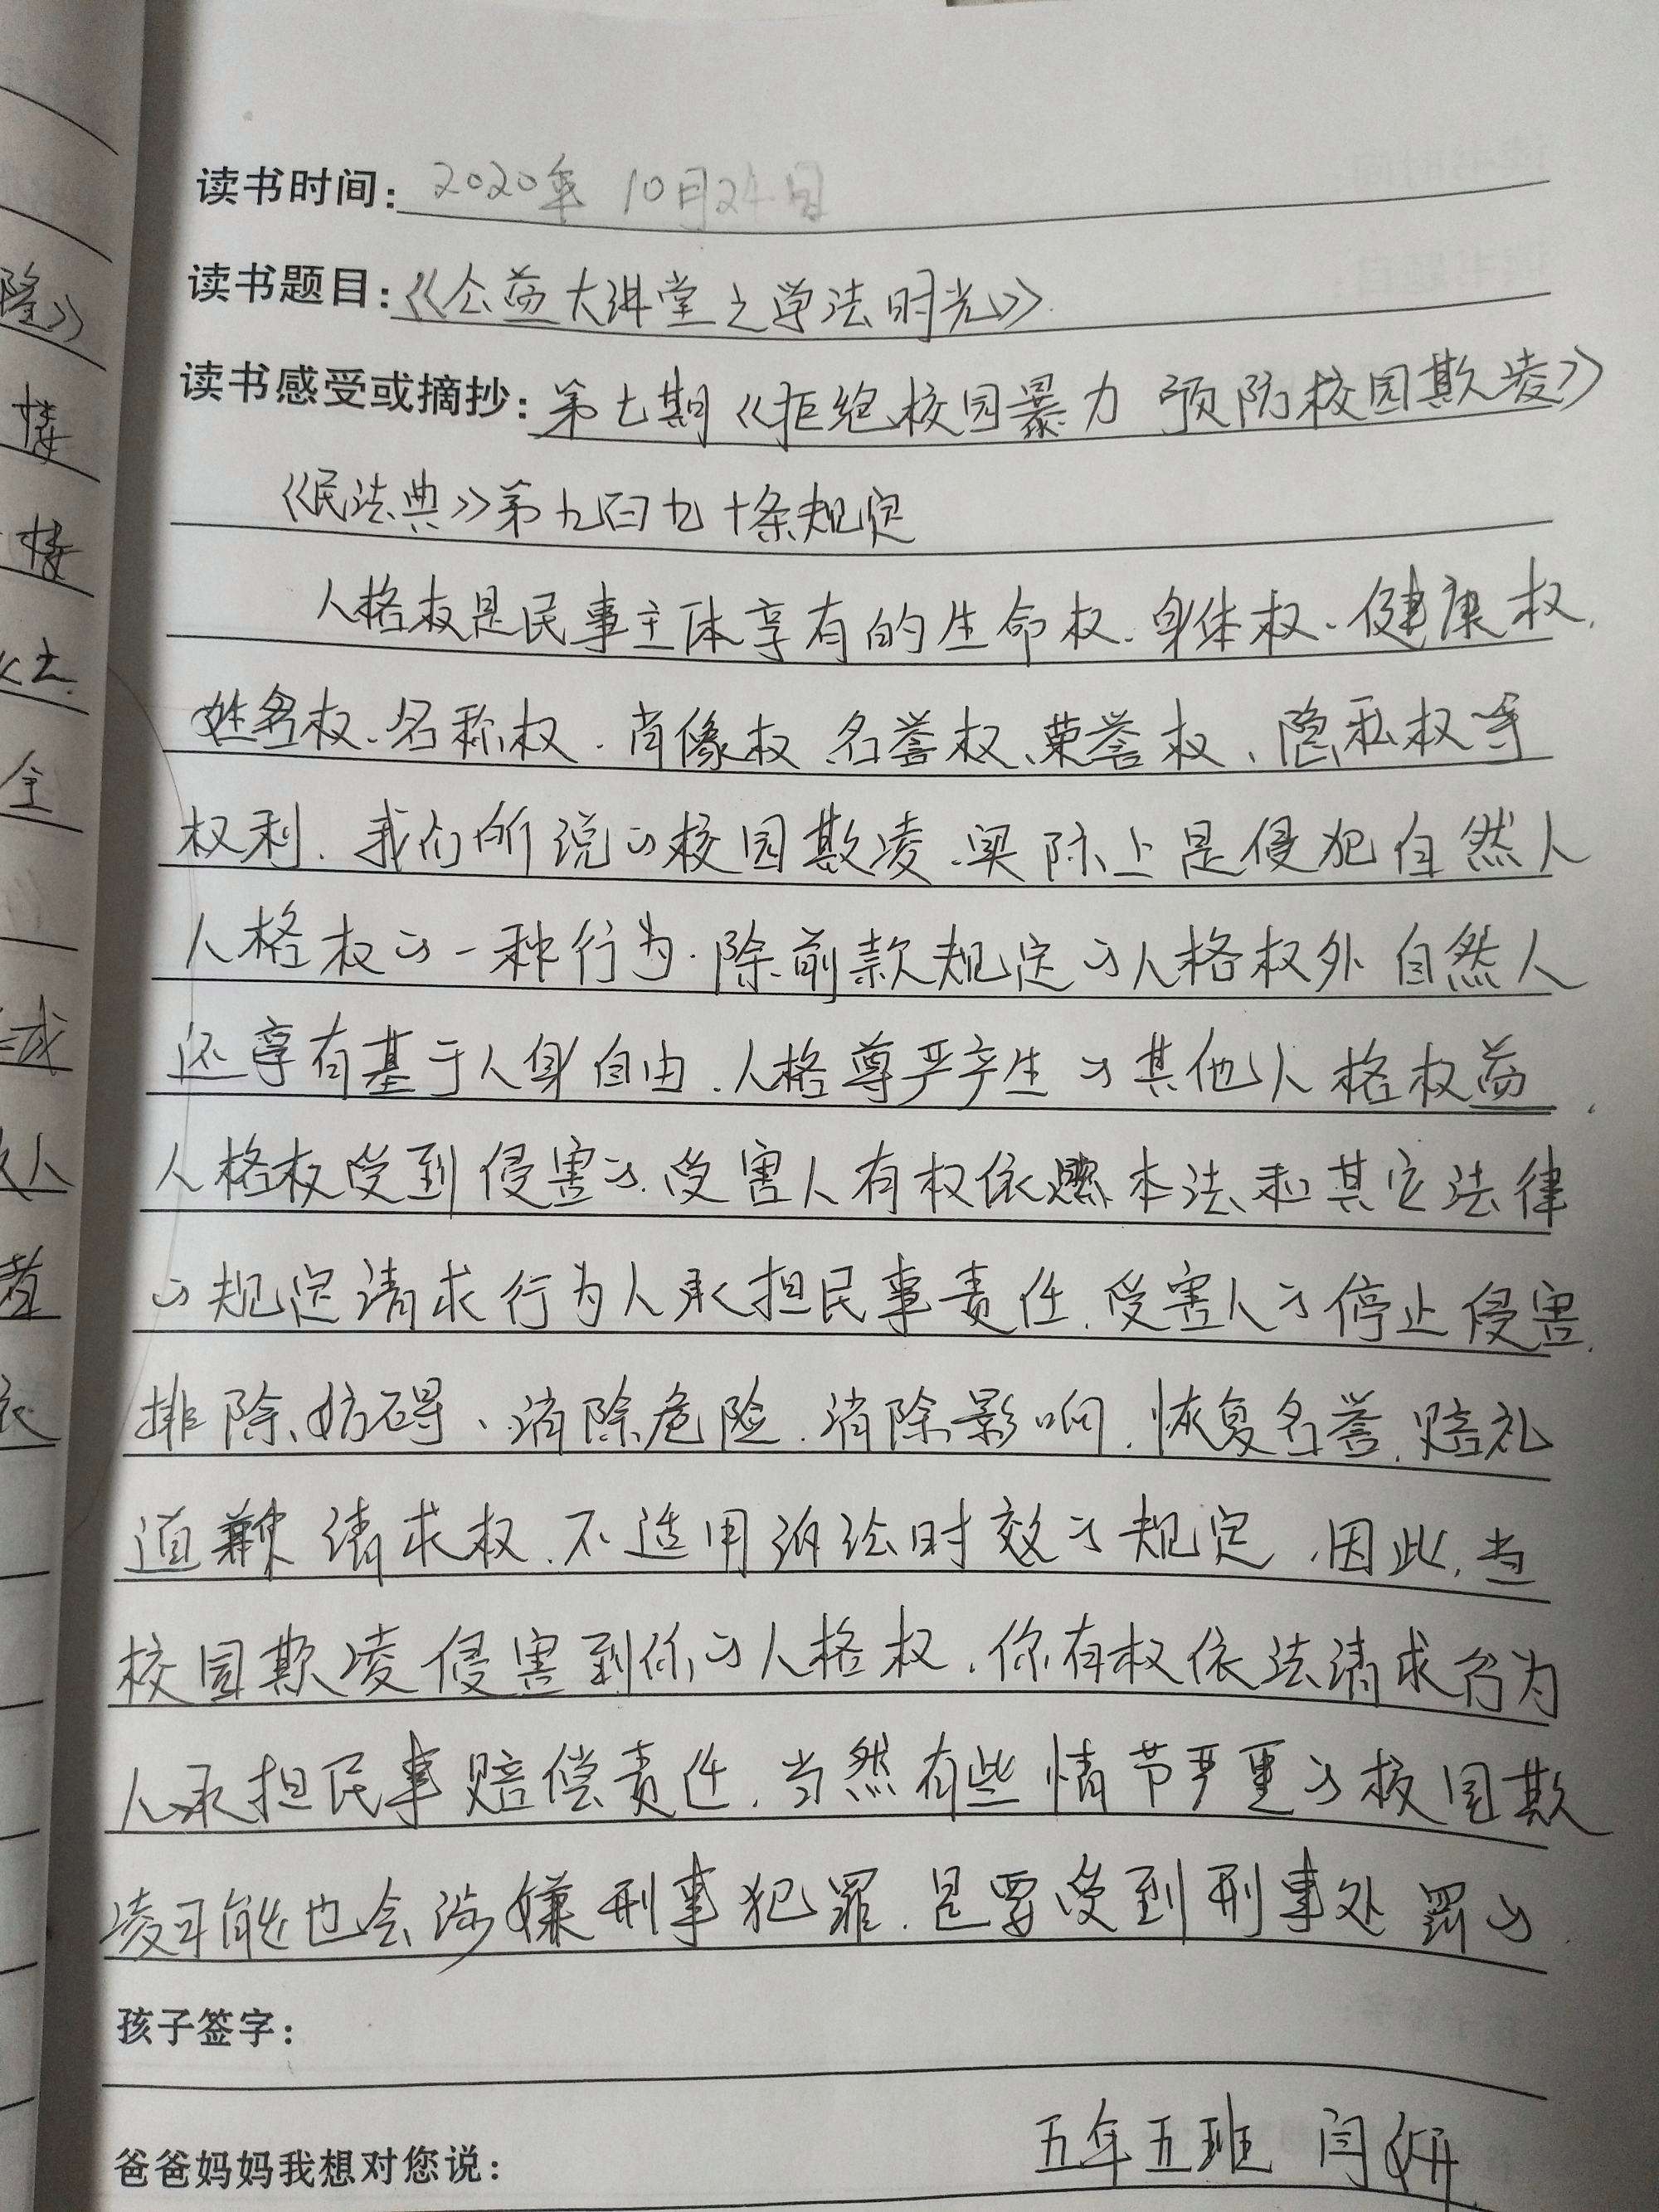 读书时间: 2020年 10月24日
读书题目: 《公益大讲堂之学法时光》
读书感受或摘抄: 第七期《拒绝校园暴力 预防校园欺凌》
《民法典》第九百九十条规定
人格权是民事主体享有的生命权、身体权、健康权、
姓名权、名称权、肖像权、名誉权、荣誉权、隐私权等
权利、我们所说的校园欺凌、实际上是侵犯自然人
人格权的一种行为.除前款规定的人格权外自然人
还享有基于人身自由、人格尊严产生的其他人格权益、
人格权受到侵害的、受害人有权依照本法和其它法律
的规定请求行为人承担民事责任、受害人的停止侵害、
排除妨碍、消除危险、消除影响、恢复名誉、赔礼
道歉请求权、不适用诉讼时效的规定、因此、当
校园欺凌侵害到你的人格权、你有权依法请求行为
人承担民事赔偿责任、当然有些情节严重的校园欺
凌可能也会涉嫌刑事犯罪、是要受到刑事处罚的、
孩子签字:
爸爸妈妈我想对您说: 五年五班 闫妍
隆》
接
接
全
人